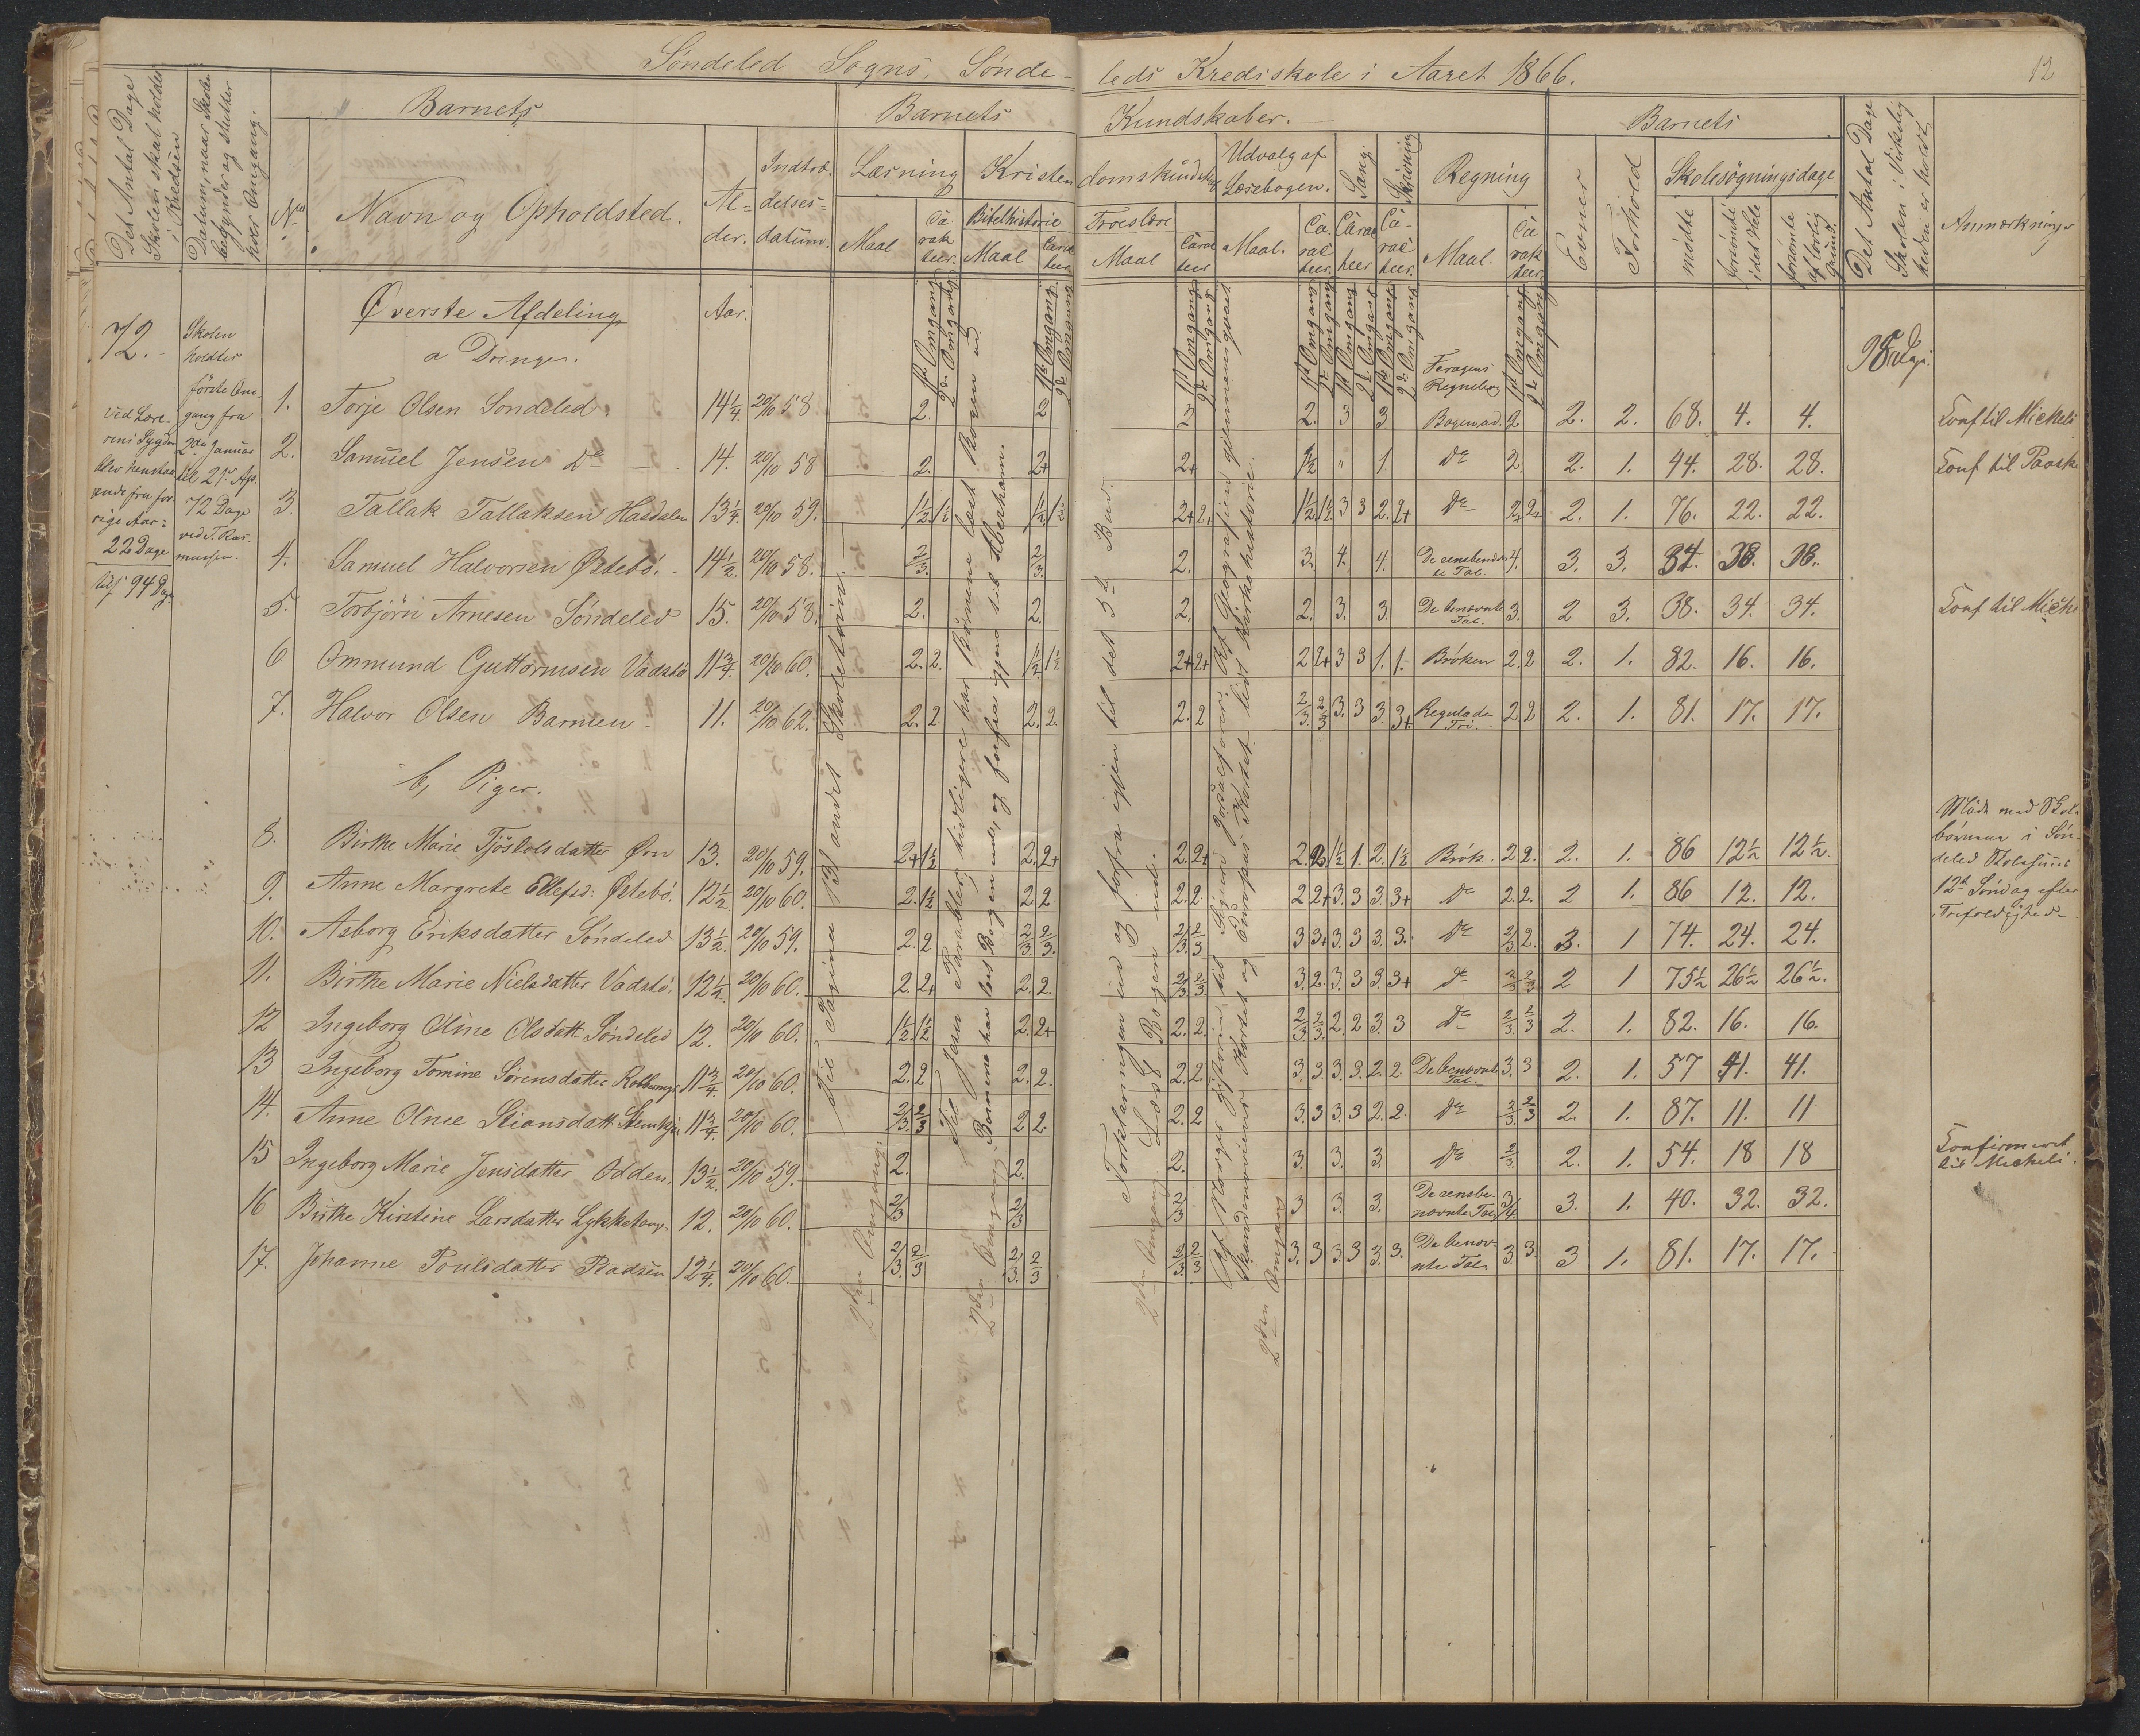 Søndeled Sogns, Sønde- leds Kredsskole i Aaret 1866. 12
Det Antal Dage Skolen skal holdes i Kredsen
Datum, naar Skolen begynder og slutter hver Omgang.
Barnets
Barnets Kundskaber.
Barnets
Det Antal Dage Skolen i Virkelig heden er holdt
Anmærkninger
No
Navn og Opholdsted.
Al- der.
Indtræ- delses- datum.
Læsning
Kristen domskundskab
Udvalg af Læsebogen.
Sang.
Skrivning
Regning
Evner
Forhold
Skolesøgningsdage
Maal
Ca rak teer.
Bibelhistorie
Maal
Carac teer
Troeslære
Maal
Carac teer
Maal.
Ca- rac teer.
Carac teer
Ca- rac teer.
Maal.
Ca rak teer.
mødte
forsømte i det Hele
forsømte af lovlig Grund.
1ste Omgang 2den Omgang
72.
Skolen holdtes første Om- gang fra 2den Januar til 21de Ap. 72 Dage ved T. Ras- mussen.
ved Lære- rens Sygdom blev henstaa ende fra for- rige Aar: 22 Dage
94 Dage
Øverste Afdeling
Aar.
a Drenge.
98 Dage.
Regnebog
1. Torje Olsen Søndeled. 14 1/4 20/10 58 2. 2 2 2. 3 3 Bogen ud. 2 2. 2. 68. 4. 4. Conf til Mickeli
2. Samuel Jensen Do 14. 20/10 58 2. 2+ 2+ 1/2 " 1. Do 2. 2. 1. 44. 28. 28. Conf til Paaske
3. Tallak Tallaksen Hasdalen 13 1/4. 20/10 59. 1 1/2 1 1/2 1 1/2 1 1/2 2+ 2+ 1 1/2 1 1/2 3 3 2. 2+ Do 2+ 2+ 2. 1. 76. 22. 22.
4. Samuel Halvorsen Østebø. 14 1/2. 20/10 58. 2/3. 2/3. 2. 3. 4. 4. De eensbenævn te Tal. 4. 3. 3. 34. 38. 38.
5. Torbjørn Arnesen Søndeled 15. 20/10 58. 2. 2. 2. 2. 3. 3. De benævnte Tal. 3. 2 3. 38. 34. 34. Conf til Micke
6 Ommund Guttormsen Vadstø 11 3/4. 20/10 60. 2. 2. 1 1/2 1 1/2 2+ 2+ 2 2+ 3 3 1. 1. Brøken 2. 2 2. 1. 82. 16. 16.
7. Halvor Olsen Barmen 11. 20/10 62. 2. 2. 2. 2. 2. 2 2/3. 2/3 3. 3 3. 3+ Regula de Tri. 2. 2 2. 1. 81. 17. 17.
b, Piger.
8. Birthe Marie Tjøstolsdatter Øen 13. 20/10 59. 2+ 1 1/2 2. 2+ 2. 2+ 2. 2 1 1/2 1. 2. 1 1/2 Brøk. 2 2. 2. 1. 86 12 1/2 12 1/2.
Møde med Skole børnene i Søn- deled Skolehuus 12te Søndag efter Trefoldighed
9. Anne Margrete Ellefsd: Østebø. 12 1/2. 20/10 60. 2. 1 1/2 2 2. 2. 2. 2 2+ 3. 3 3. 3+ Do 2. 2. 2 1. 86 12. 12.
10. Asborg Eriksdatter Søndeled 13 1/2. 20/10 59. 2. 2 2/3. 2/3. 2/3. 2/3 3 3+ 3. 3 3. 3. Do 2/3 2. 3. 1 74. 24. 24.
11. Birthe Marie Nielsdatter Vadstø. 12 1/2. 20/10 60. 2. 2+ 2. 2. 2/3 2/3 3. 2. 3. 3 3. 3+ Do 2/3 2/3 2 1 75 1/2 26 1/2 26 1/2.
12 Ingeborg Oline Olsdatt Søndeled 12. 20/10 60. 1 1/2. 1 1/2 2. 2+ 2. 2. 2/3. 2/3. 2. 2 3. 3 Do 2/3. 2/3 2. 1. 82. 16. 16.
13 Ingeborg Tomine Sørensdatter 11 3/4 20/10 60. 2. 2 2. 2. 2. 2. 3. 3. 3. 3. 2. 2. De benævnte Tal. 3. 3 2. 1. 57 41. 41.
14. Anne Oline Stiansdatt. 11 3/4. 20/10 60. 2/3. 2/3 2 2. 2. 2 3. 3 3. 3 2. 2. Do 2/3. 2/3 2. 1. 87. 11. 11
15 Ingeborg Marie Jensdatter Odden. 13 1/2. 20/10 59. 2. 2. 2. 3. 3. 3. Do 2/3. 2. 1. 54. 18 18 Confirmeret til Mickeli.
16 Birthe Kirstine Larsdatter 12. 20/10 60. 2/3 2/3 2/3 3 3. 3. De eensbe- nævnte Tal 3/4. 3. 1. 40. 32. 32.
17. Johanne Poulsdatter 12 1/4. 20/10 60. 2/3. 2/3 2/3. 2/3 2/3. 2/3 3. 3. 3. 3 3. 3. De benæv- nte Tal 3. 3. 3 1. 81. 17. 17.
Til Pagina 131 andet Skoletrin.
2den Omgang
Til Jesu Parabler, tidligere har Børnene læst Bogen ud.
Børnene har læst Bogen ud, og forfra igjen til Abraham.
2den Omgang
Forklaringen ud og forfra igjen til det 5te Bud.
2den Omgang Læst Bogen ud.
Af Norges Historie til Sigurd Jorsalfarer. Af Geografien gjennemgaaet Skandinaviens Kortet og Europas Kortet lidt Kirkehistorie.
2den Omgang